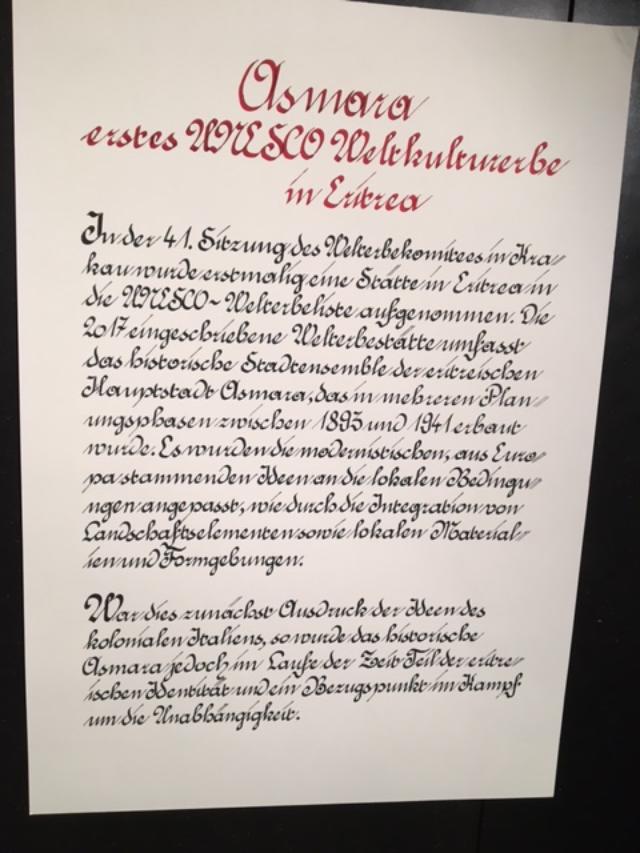 Asmara
erstes UNESCO Weltkulturerbe
in Eritrea
In der 41. Sitzung des Welterbekomitees in Kra//
kau wurde erstmalig eine Stätte in Eritrea in
die UNESCO~Welterbeliste aufgenommen. Die
2017 eingeschriebene Welterbestätte umfasst
das historische Stadtensemble der eritreischen
Hauptstadt Asmara, das in mehreren Plan//
ungsphasen zwischen 1893 und 1941 erbaut
wurde. Es wurden die modernistischen, aus Euro//
pa stammenden Ideen an die lokalen Bedingu//
ngen angepasst, wie durch die Integration von
Landschaftselementen sowie lokalen Material//
ien und Formgebungen.
War dies zunächst Ausdruck der Ideen des
kolonialen Italiens, so wurde das historische
Asmara jedoch im Laufe der Zeit Teil der eritre//
ischen Identität und ein Bezugspunkt im Kampf
um die Unabhängigkeit.